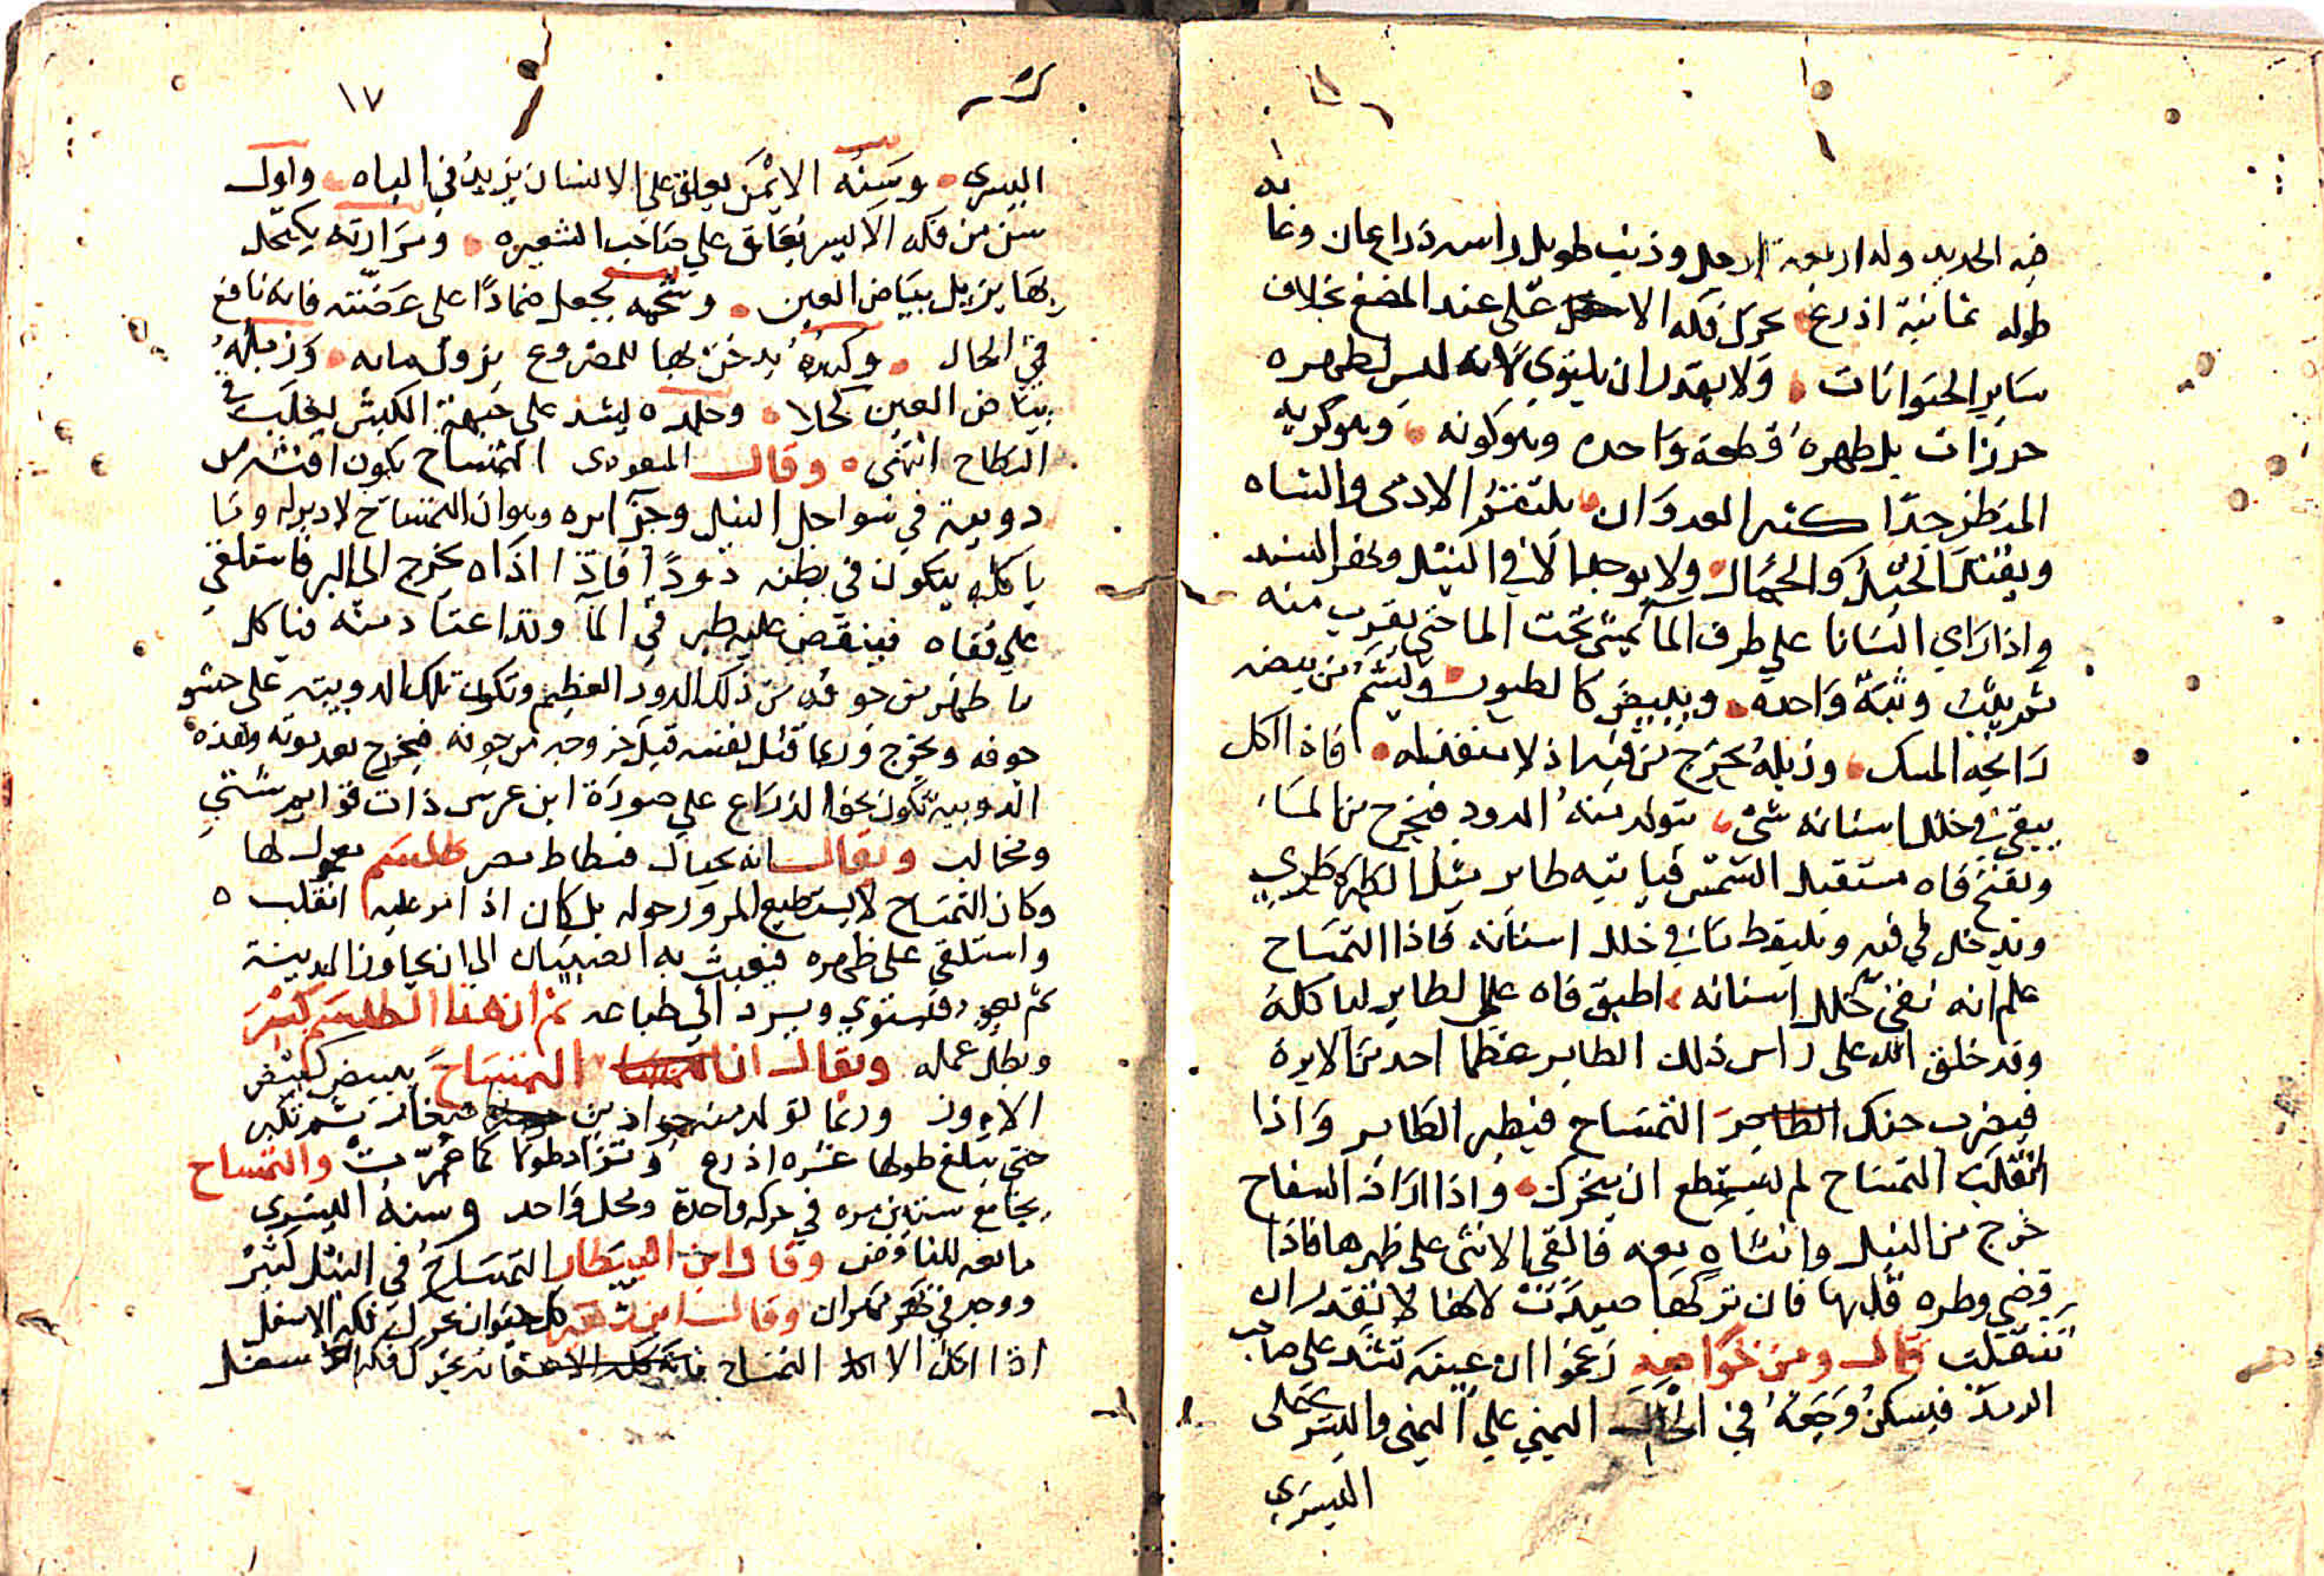 فيه الحديد وله اربعة ارجل وذنب طويل راسه ذراعان وغاية
طوله ثمانية اذرع يحرك فكه الاعلى عند المضغ بخلاف
ساير الحيوانات ولا يقدر ان يلتوي لانه ليس لظهره
خرزات بل ظهره قطعة واحده وهو كونه وهو كريه
المنظر جدا كثير العدوان يلتقم الادمى والشاه
ويقتل الخيل والجمال ولا يوجد الا في النيل ونهر السند
واذا راي انسانا على طرف الما يمشى تحت الما حتى يقرب منه
ثم يثب وثبة واحده ويبيض كالطيور ويشم من بيضه
رايحة المسك وزبله يخرج من فيه اذ لا منفذ له فاذا اكل
يبقى في خلل اسنانه شى يتولد منه الدود فيخرج من الما
ويفتح فاه مستقبل الشمس فياتيه طاير مثل
ويدخل في فيه ويلتقط ما في خلل اسنانه فاذا التمساح
علم انه نقى خلل اسنانه اطبق فاه على الطاير لياكله
وقد خلق الله على راس ذلك الطاير عظما احد من الابرة
فيضرب حنك التمساح فيطير الطاير واذا
انقلب التمساح لم يستطع ان يتحرك واذا اراد السفاح
خرج من النيل وانثاه معه فالقى الانثى على ظهرها فاذا
قضى وطره قلبها فان تركها صيدت لانها لا تقدر ان
تنقلب قال ومن خواصه زعموا ان عينه تشد على صاحب
الرمد فيسكن وجعه في الحال اليمني علي اليمنى واليسرى على
اليسري
١٧
اليسرى وسنه الايمن يعلق على الانسان يزيد في الباه واول
سن من فكه الايسر يعلق علي صاحب الشعيره ومرارته يكتحل
بها يزيل بياض العين وشحمه يجعل ضمادا على عضته فانه نافع
في الحال وكبده يدخن بها للمصروع يزول مابه وزبله
بياض العين كحلا وجلده يشد على جبهة الكبش يغلب في
النطاح انتهى وقال المسعودى التمساح يكون
دويبة في سواحل النيل وجزايره وهو ان التمساح لا دبر له وما
ياكله يتكون في بطنه دودا فاذا اذاه يخرج الى البر فاستلقي
علي قفاه فينقض عليه طير في الما وقد اعتاد منه فياكل
ما ظهر من جوفه من ذلك الدود العظيم وتكون تلك الدويبة على
جوفه وتخرج وربما قتل نفسه قبل خروجه من جوفه فيخرج بعد موته وهذه
الدويبة تكون نحو الذراع علي صورة ابن عرس ذات قوايم شتي
ومخالب ويقال انه بجبال فسطاط مصر طلسم معمول لها
وكان التمساح لا يستطيع المرور حوله بل كان اذا مر عليه انقلب
واستلقى على ظهره فيعبث به الصبيان الي ان يجاوز المدينة
ثم يعود فيستوي ويرد الي طباعه ثم ان هذا الطلسم كسر
وبطل عمله ويقال ان التمساح يبيض كبيض
الاوز وربما تولد منه جراذين صغار ثم تكبر
حتى يبلغ طولها عشره اذرع وتزاد طولا كما عمرت والتمساح
يجامع ستين مره في حركه واحدة ومحل واحد وسنه اليسرى
مانعه للنافض وقال ابن البيطار التمساح في النيل كثير
ووجد في نهر مكران وقال ابن زهر كل حيوان يحرك فكه الاسفل
اذا اكل الا التمساح فانه يحرك فكه